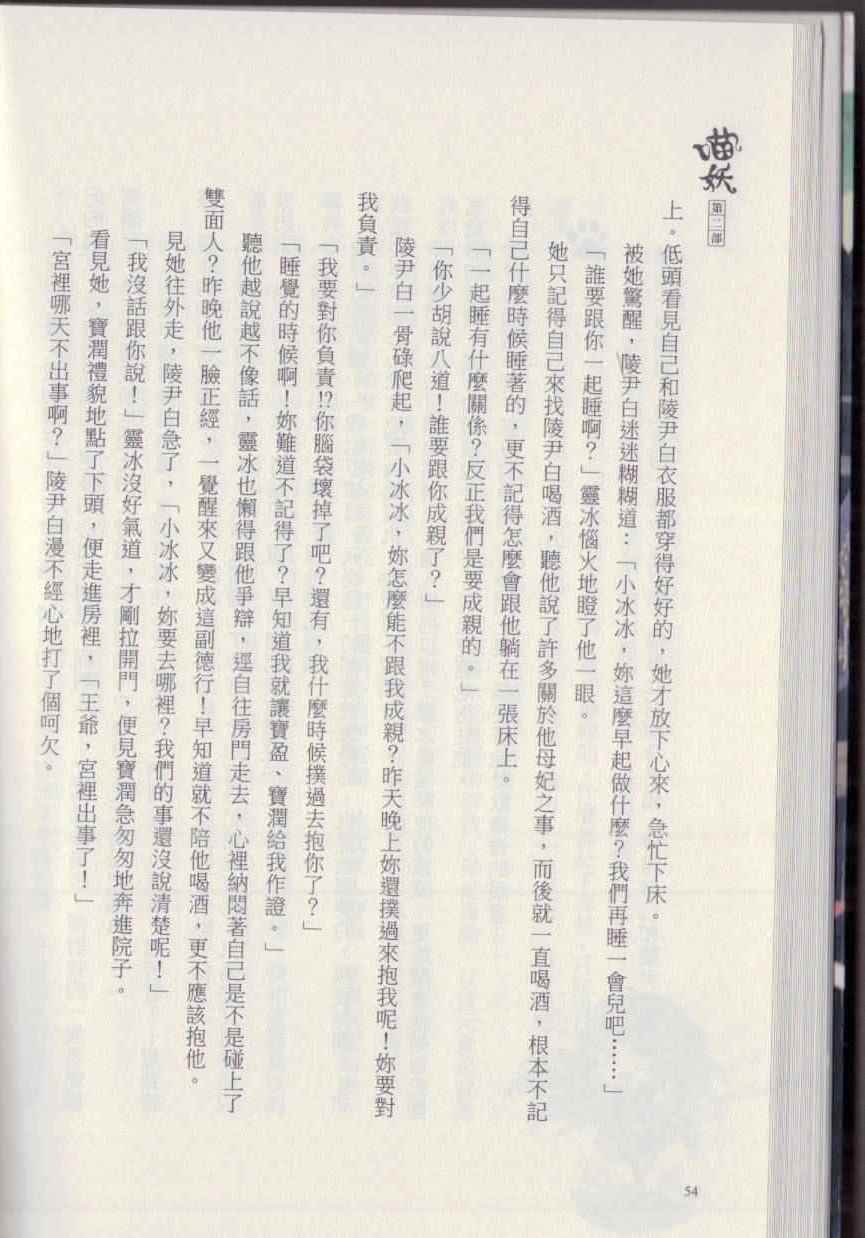 喵妖
第二部
上。低頭看見自己和陵尹白衣服都穿得好好的，她才放下心來，急忙下床。
被她驚醒，陵尹白迷迷糊糊道：「小冰冰，妳這麼早起做什麼？我們再睡一會兒吧……」
「誰要跟你一起睡啊？」靈冰惱火地瞪了他一眼。
她只記得自己來找陵尹白喝酒，聽他說了許多關於他母妃之事，而後就一直喝酒，根本不記
得自己什麼時候睡著的，更不記得怎麼會跟他躺在一張床上。
「一起睡有什麼關係？反正我們是要成親的。」
「你少胡說八道！誰要跟你成親了？」
陵尹白一骨碌爬起，「小冰冰，妳怎麼能不跟我成親？昨天晚上妳還撲過來抱我呢！妳要對
我負責。」
「我要對你負責!?你腦袋壞掉了吧？還有，我什麼時候撲過去抱你了？」
「睡覺的時候啊！妳難道不記得了？早知道我就讓寶盈、寶潤給我作證。」
聽他越說越不像話，靈冰也懶得跟他爭辯，逕自往房門走去，心裡納悶著自己是不是碰上了
雙面人？昨晚他一臉正經，一覺醒來又變成這副德行！早知道就不陪他喝酒，更不應該抱他。
見她往外走，陵尹白急了，「小冰冰，妳要去哪裡？我們的事還沒說清楚呢！」
「我沒話跟你說！」靈冰沒好氣道，才剛拉開門，便見寶潤急匆匆地奔進院子。
看見她，寶潤禮貌地點了下頭，便走進房裡，「王爺，宮裡出事了！」
「宮裡哪天不出事啊？」陵尹白漫不經心地打了個呵欠。
54